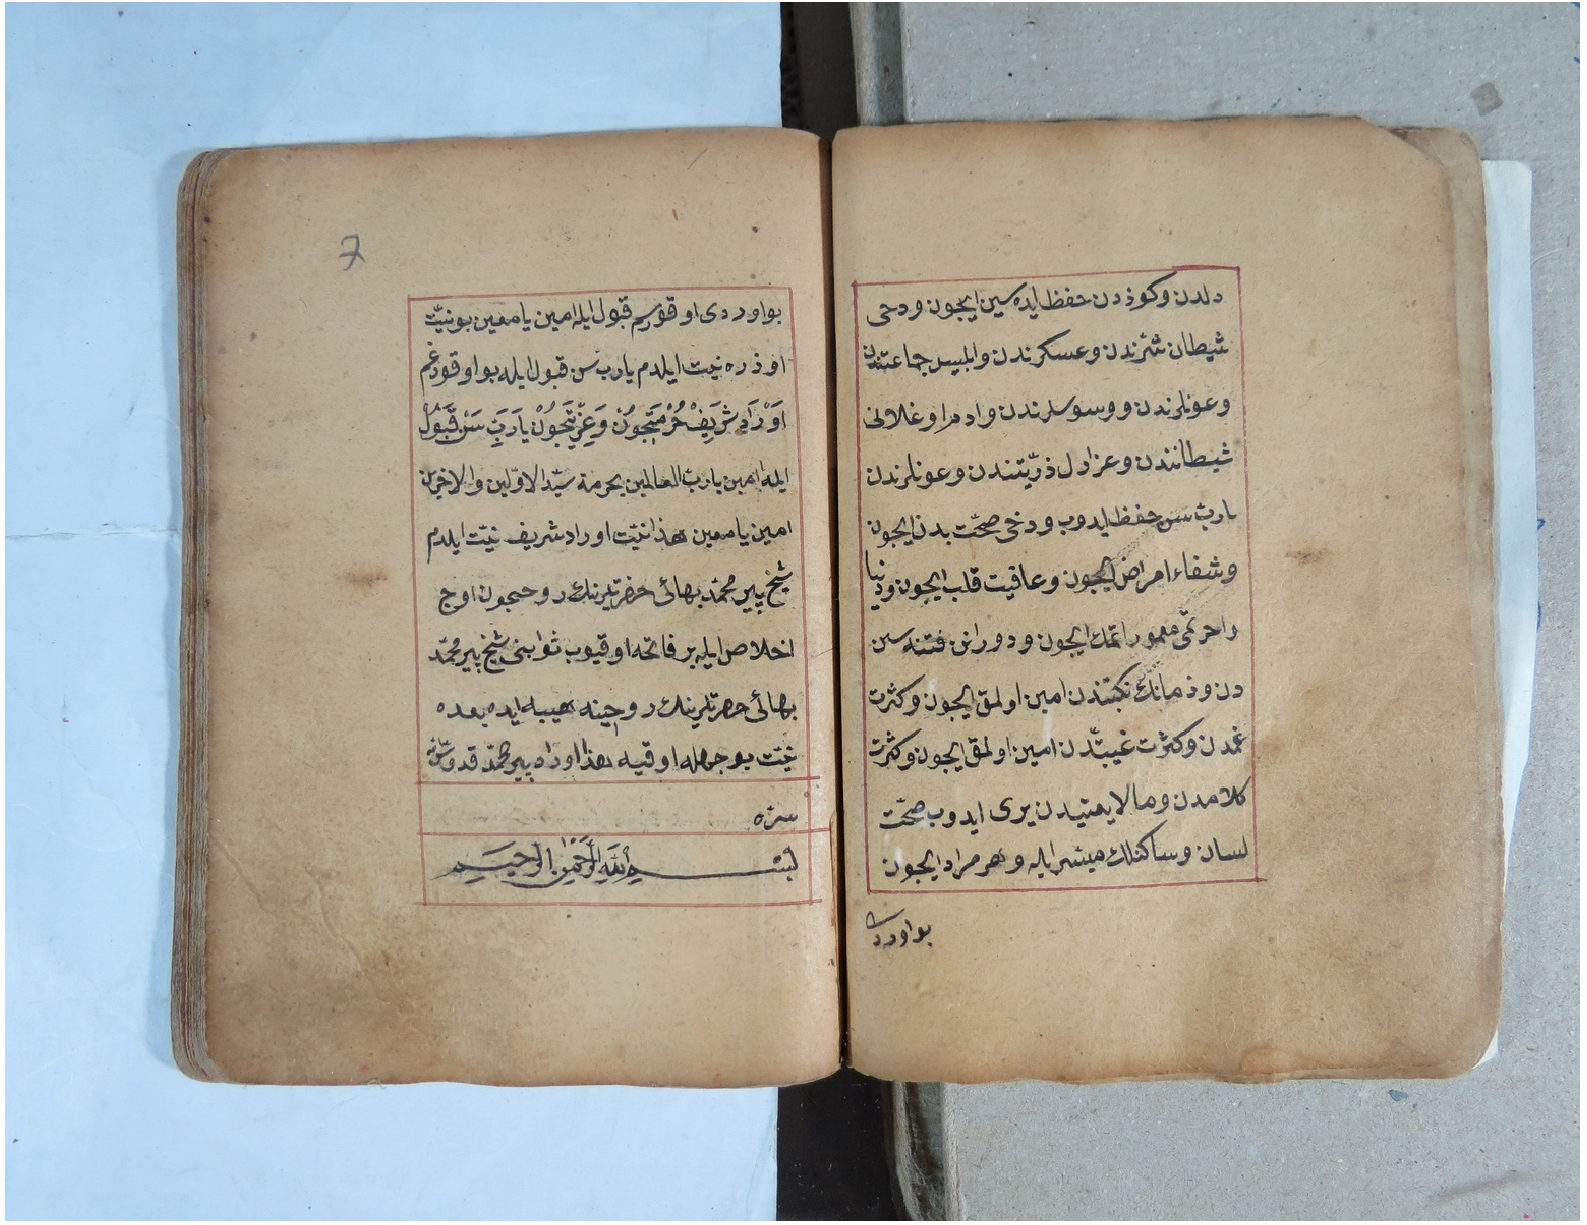 دلدن وكوزدن حفظ ايده سين ايجون ودخى
شيطان شرّندن وعسكرندن وابليس جماعتندن
وعونلرندن ووسوسلرندن وادم اوغلانى
شيطانندن وعزازل ذرّيتندن وعونلرندن
يارب سن حفظ ايدوب ودخى صحّت بدن ايجون
وشفاء امراض ايجون وعافيت قلب ايجون ودنيا
معمور اتمك ايجون ودوران فتنه سن
دن وزمانك نكبتندن امين اولمق ايجون وكثرت
غمدن وكثرت غيبتدن امين اولمق ايجون وكثرت
كلامدن ومالايعنيدن برى ايدوب صحّت
لسان وساكتلك ميسّر ايله وهر مراد ايجون
بواورد
7
بواوردى اوقورم قبول ايله امين يا معين بونيّت
اوزره نيت ايلدم يارب سن قبول ايله بو اوقودغم
اَوْرَادِ شَرِيفْ حُرْمَتِيجُونْ وَعِزَّتِيجُونْ يَارَبِّ سَنْ قَبُولْ
ايله امين يارب العالمين بحرمة سيّد الاوّلين والاخرين
امين يا معين هذا نيّت اوراد شريف نيت ايلدم
شيخ پير محمّد بهائى حضرتلرينك روحيجون اوج
اخلاص ايله بر فاتحه اوقيوب ثوابنى شيخ پير محمّد
بهائى حضرتلرينك روحينه هيبه ايده بعده
نيّت بو جمله اوقيه هذا اوراد پير محمّد قدّوس الله
سرّه
بِسْــــمِ اللّٰهِ الرَّحْمٰنِ الرَّحِيــمِ